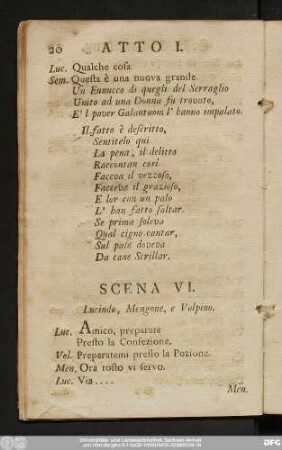 20 ATTO I.
Luc. Qualche cosa
Sem. Questa è una nuova grande.
Un Eunucco di quegli del Serraglio
Unito ad una Donna fu trovato,
E' l pover Galantuom l' hanno impalato.
Il fatto è descritto,
Sentitelo qui
La pena, il delitto
Raccontan così
Faceva il vezzoso,
Facceva il grazioso,
E lor con un palo
L' han fatto saltar.
Se prima soleva
Qual cigno cantar,
Sul palo doveva
Da cane Strillar.
SCENA VI.
Lucindo, Mengone, e Volpino.
Luc. Amico, preparate
Presto la Confezione.
Vol. Preparatemi presto la Pozione.
Men. Ora tosto vi servo.
Luc. Via ....
Men.
Universitäts- und Landesbibliothek Sachsen-Anhalt
DFG